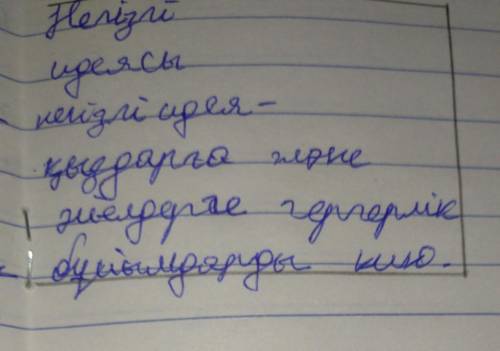 Негізгі
идеясы
негізгі идея-
қыздарға және
әйелдерге зергерлік
бұйымдарды кию.